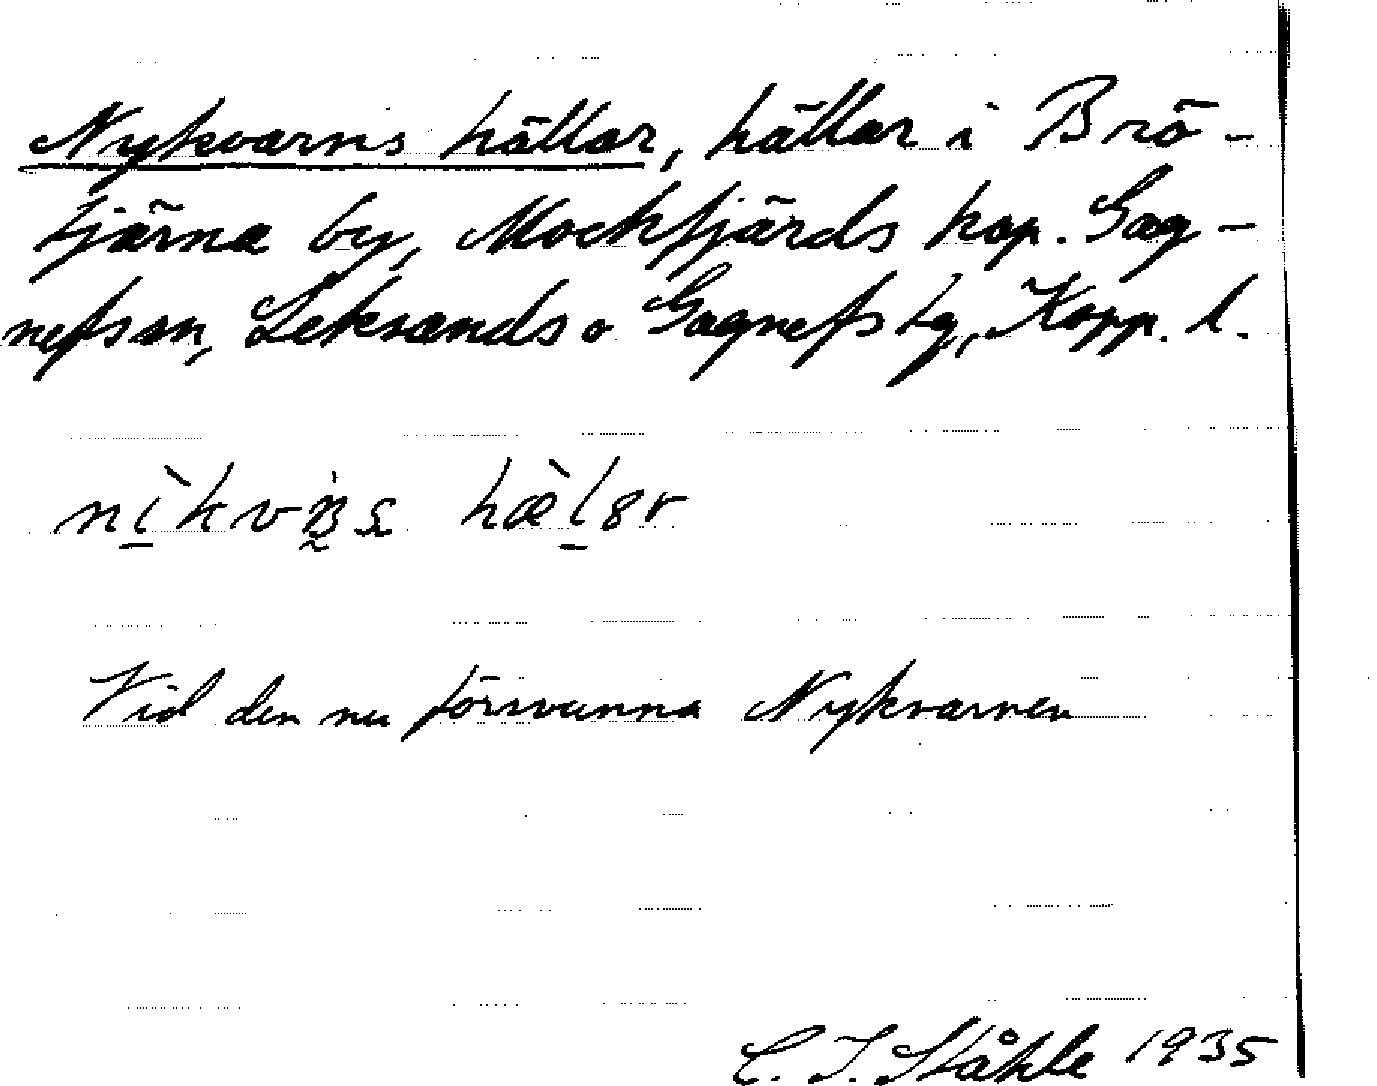 Nykvarns hällar, hällar i Brö-
tjärna by, Mockfjärds kap. Gag-
nefs sn, Leksands o Gagnefs tg, Kopp. l.
hæ̀lar
Vid den nu försvunna Nykvarnen
C. I. Ståhle 1935